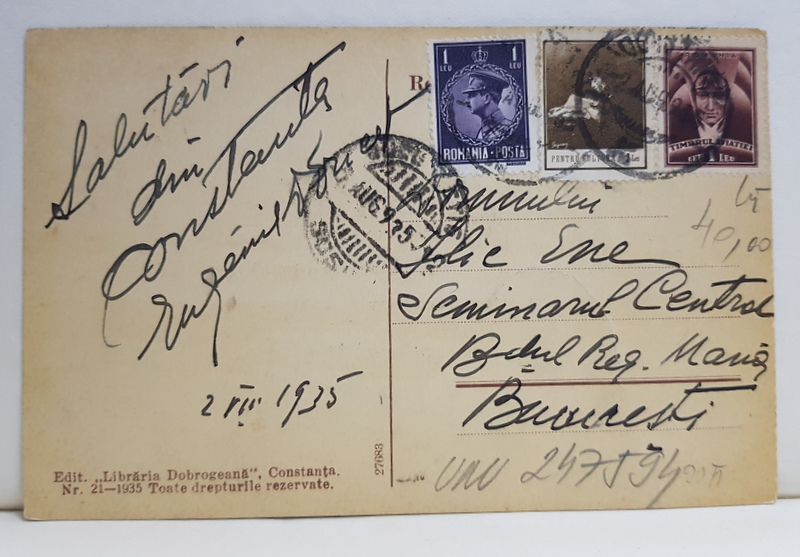 Salutări
din
Constanta
2 VIII 1935
Edit. „Librăria Dobrogeană“, Constanța.
Nr. 21—1935 Toate drepturile rezervate.
27683
1 LEU 1 LEU
ROMANIA·POSTA
PENTRU CULTURĂ 2 Lei
TIMBRUL AVIATIEI
UN LEU
AUG 935
SOS
Domnului
Ilie Ene
Seminarul Central
Bdul Reg. Maria
București
40,00
UNU 247594